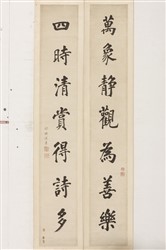 萬象静觀為善樂
四時清賞得詩多